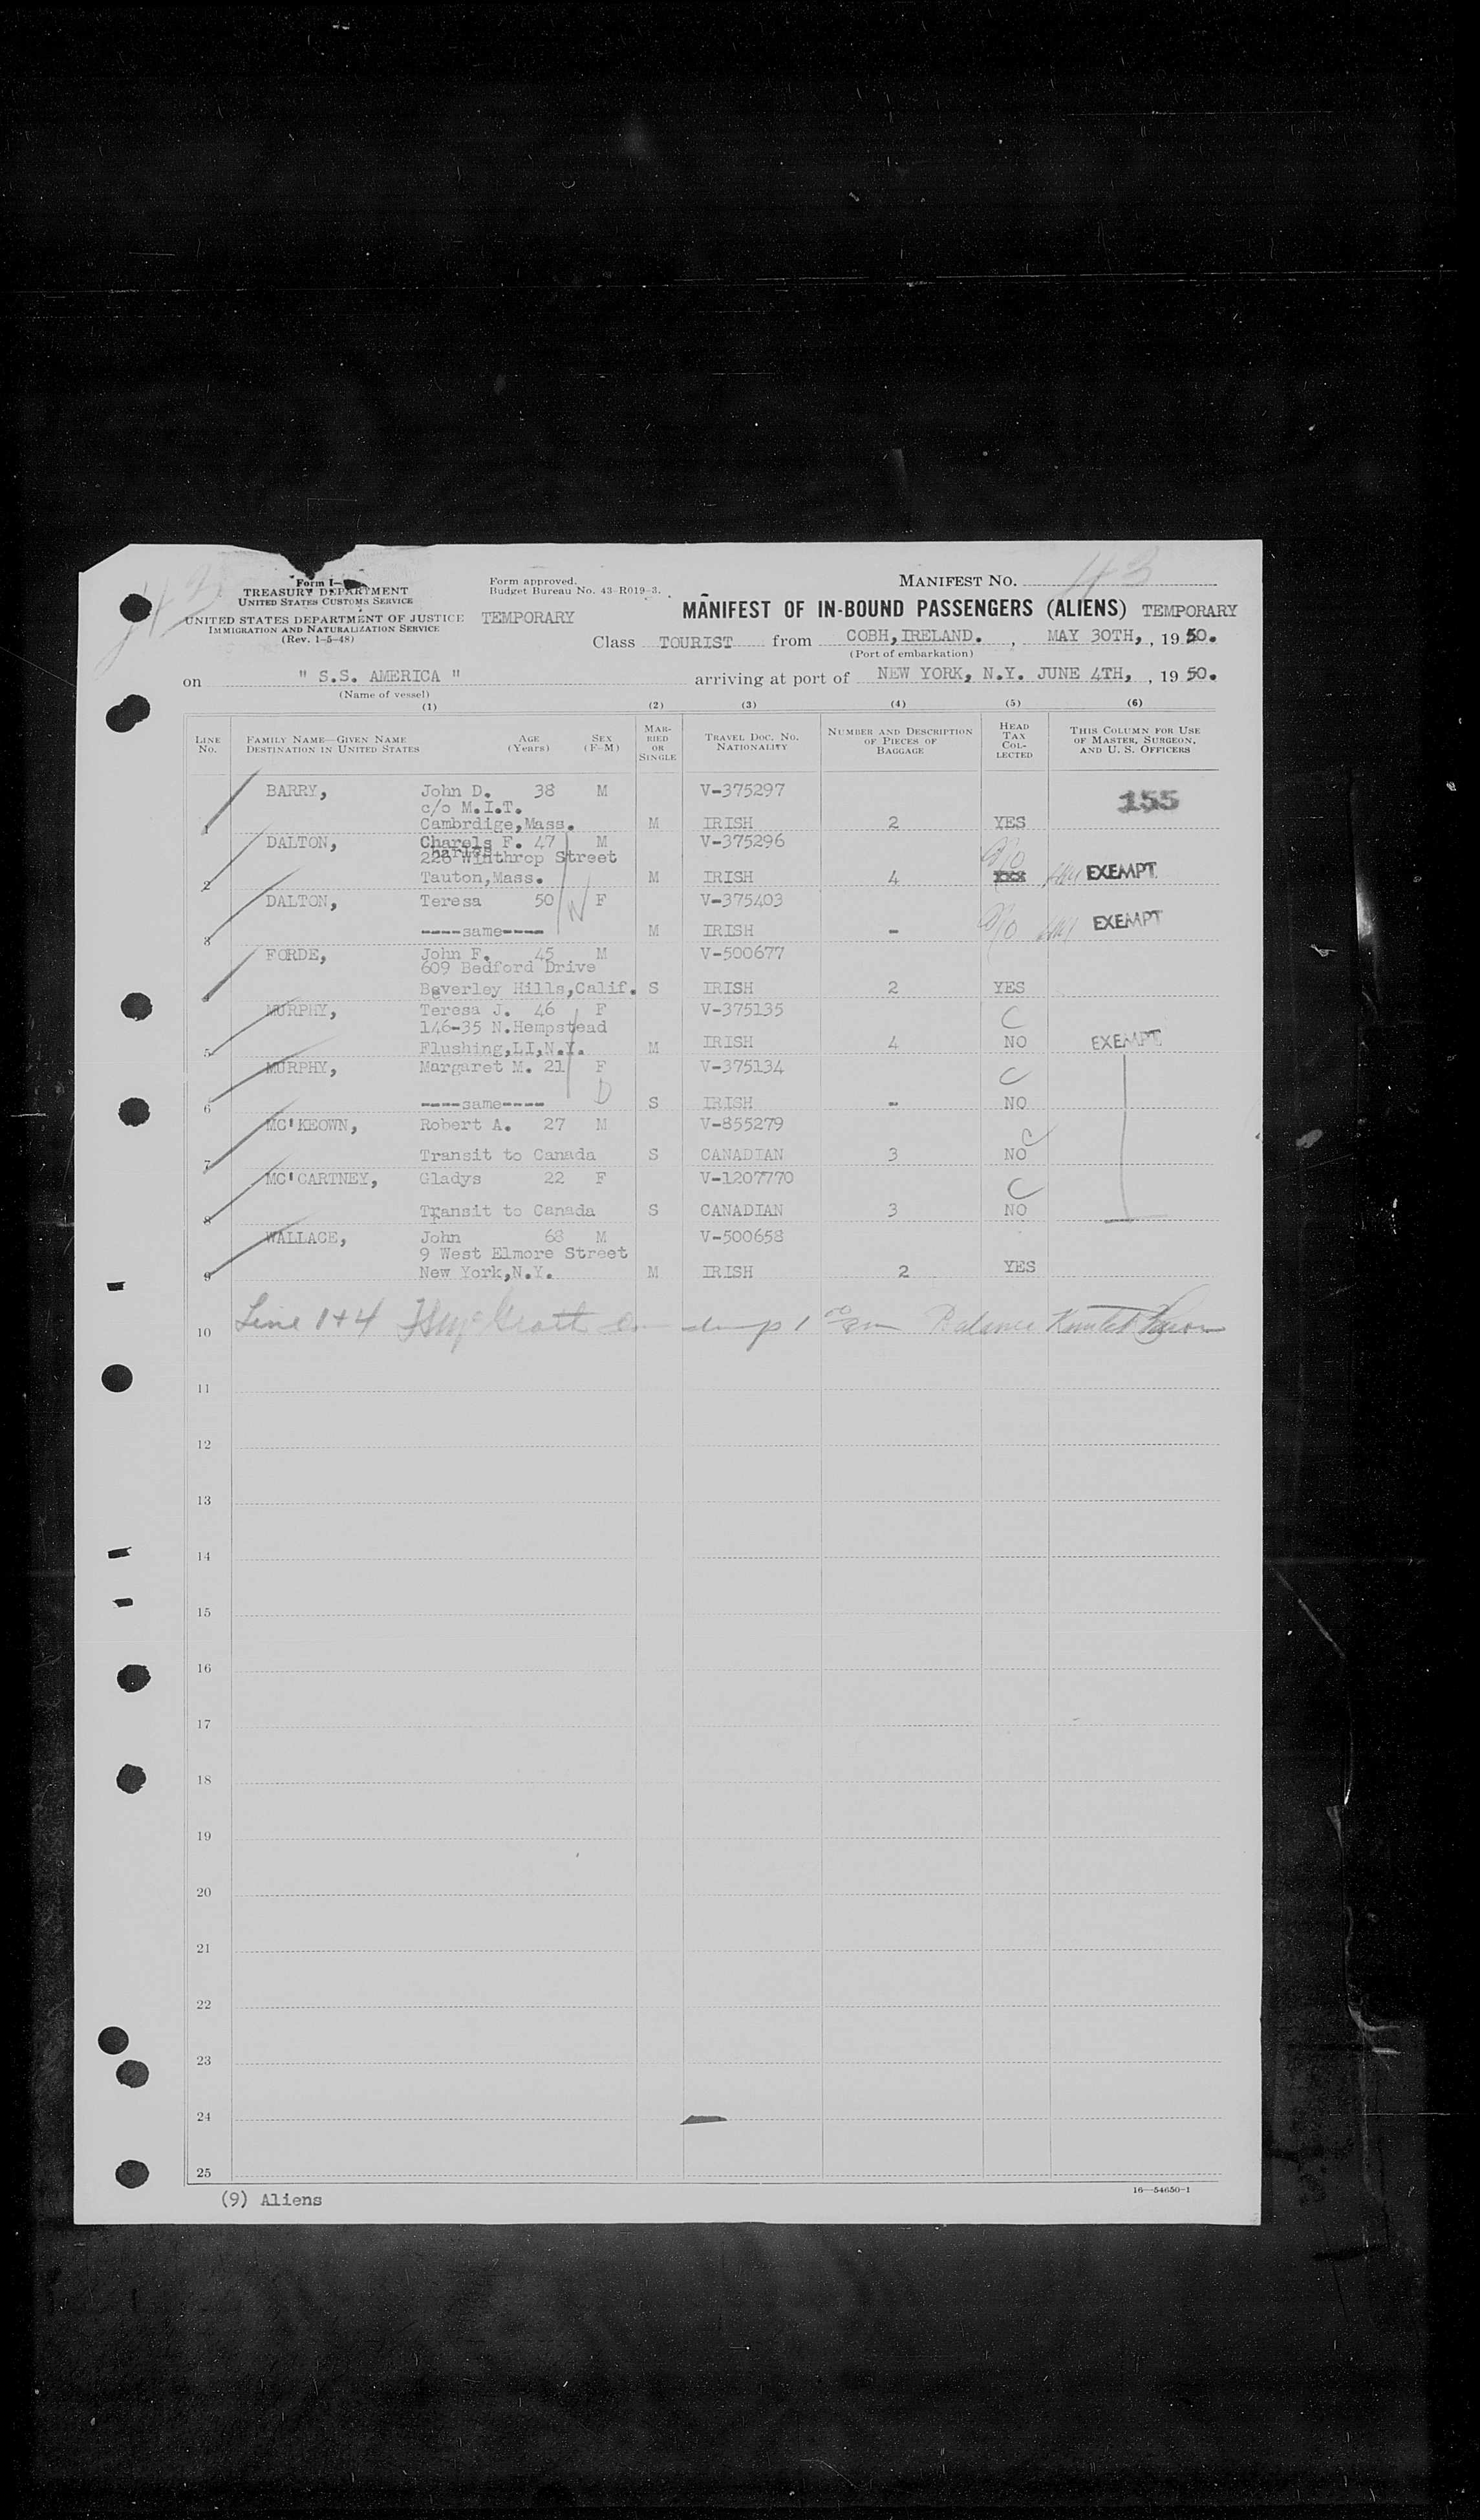 43
Form I-
TREASURY DEPARTMENT
UNITED STATES CUSTOMS SERVICE
UNITED STATES DEPARTMENT OF JUSTICE
IMMIGRATION AND NATURALIZATION SERVICE
(Rev. 1-5-48)
Form approved.
Budget Bureau No. 43-R019-3.
TEMPORARY
MANIFEST No. 43
MANIFEST OF IN-BOUND PASSENGERS (ALIENS) TEMPORARY
Class TOURIST from COBH, IRELAND. , MAY 30TH, , 19 50.
(Port of embarkation)
on " S.S. AMERICA " arriving at port of NEW YORK, N.Y. JUNE 4TH, , 19 50.
(Name of vessel)
(1) (2) (3) (4) (5) (6)
LINE No. FAMILY NAME—GIVEN NAME DESTINATION IN UNITED STATES AGE (Years) SEX (F-M) MARRIED OR SINGLE TRAVEL DOC. NO. NATIONALITY NUMBER AND DESCRIPTION OF PIECES OF BAGGAGE HEAD TAX COLLECTED THIS COLUMN FOR USE OF MASTER, SURGEON, AND U. S. OFFICERS
BARRY, John D. 38 M V-375297 155
c/o M.I.T.
1 Cambrdige, Mass. M IRISH 2 YES
DALTON, Charels F. 47 M V-375296
Charles
226 Winthrop Street No
2 Tauton, Mass. M IRISH 4 EXEMPT
DALTON, Teresa 50 F V-375403
3 ----same---- M IRISH - No EXEMPT
FORDE, John F. 45 M V-500677
609 Bedford Drive
4 Beverley Hills, Calif. S IRISH 2 YES
MURPHY, Teresa J. 46 F V-375135
146-35 N.Hempstead C
5 Flushing, LI, N.Y. M IRISH 4 NO EXEMPT
MURPHY, Margaret M. 21 F V-375134 C
6 ----same---- S IRISH - NO
MC'KEOWN, Robert A. 27 M V-855279 C
7 Transit to Canada S CANADIAN 3 NO
MC'CARTNEY, Gladys 22 F V-1207770 C
8 Transit to Canada S CANADIAN 3 NO
WALLACE, John 68 M V-500658
9 West Elmore Street
9 New York, N.Y. M IRISH 2 YES
10 Line 1+4 McGrath Balance
11
12
13
14
15
16
17
18
19
20
21
22
23
24
25
(9) Aliens
16—54650-1